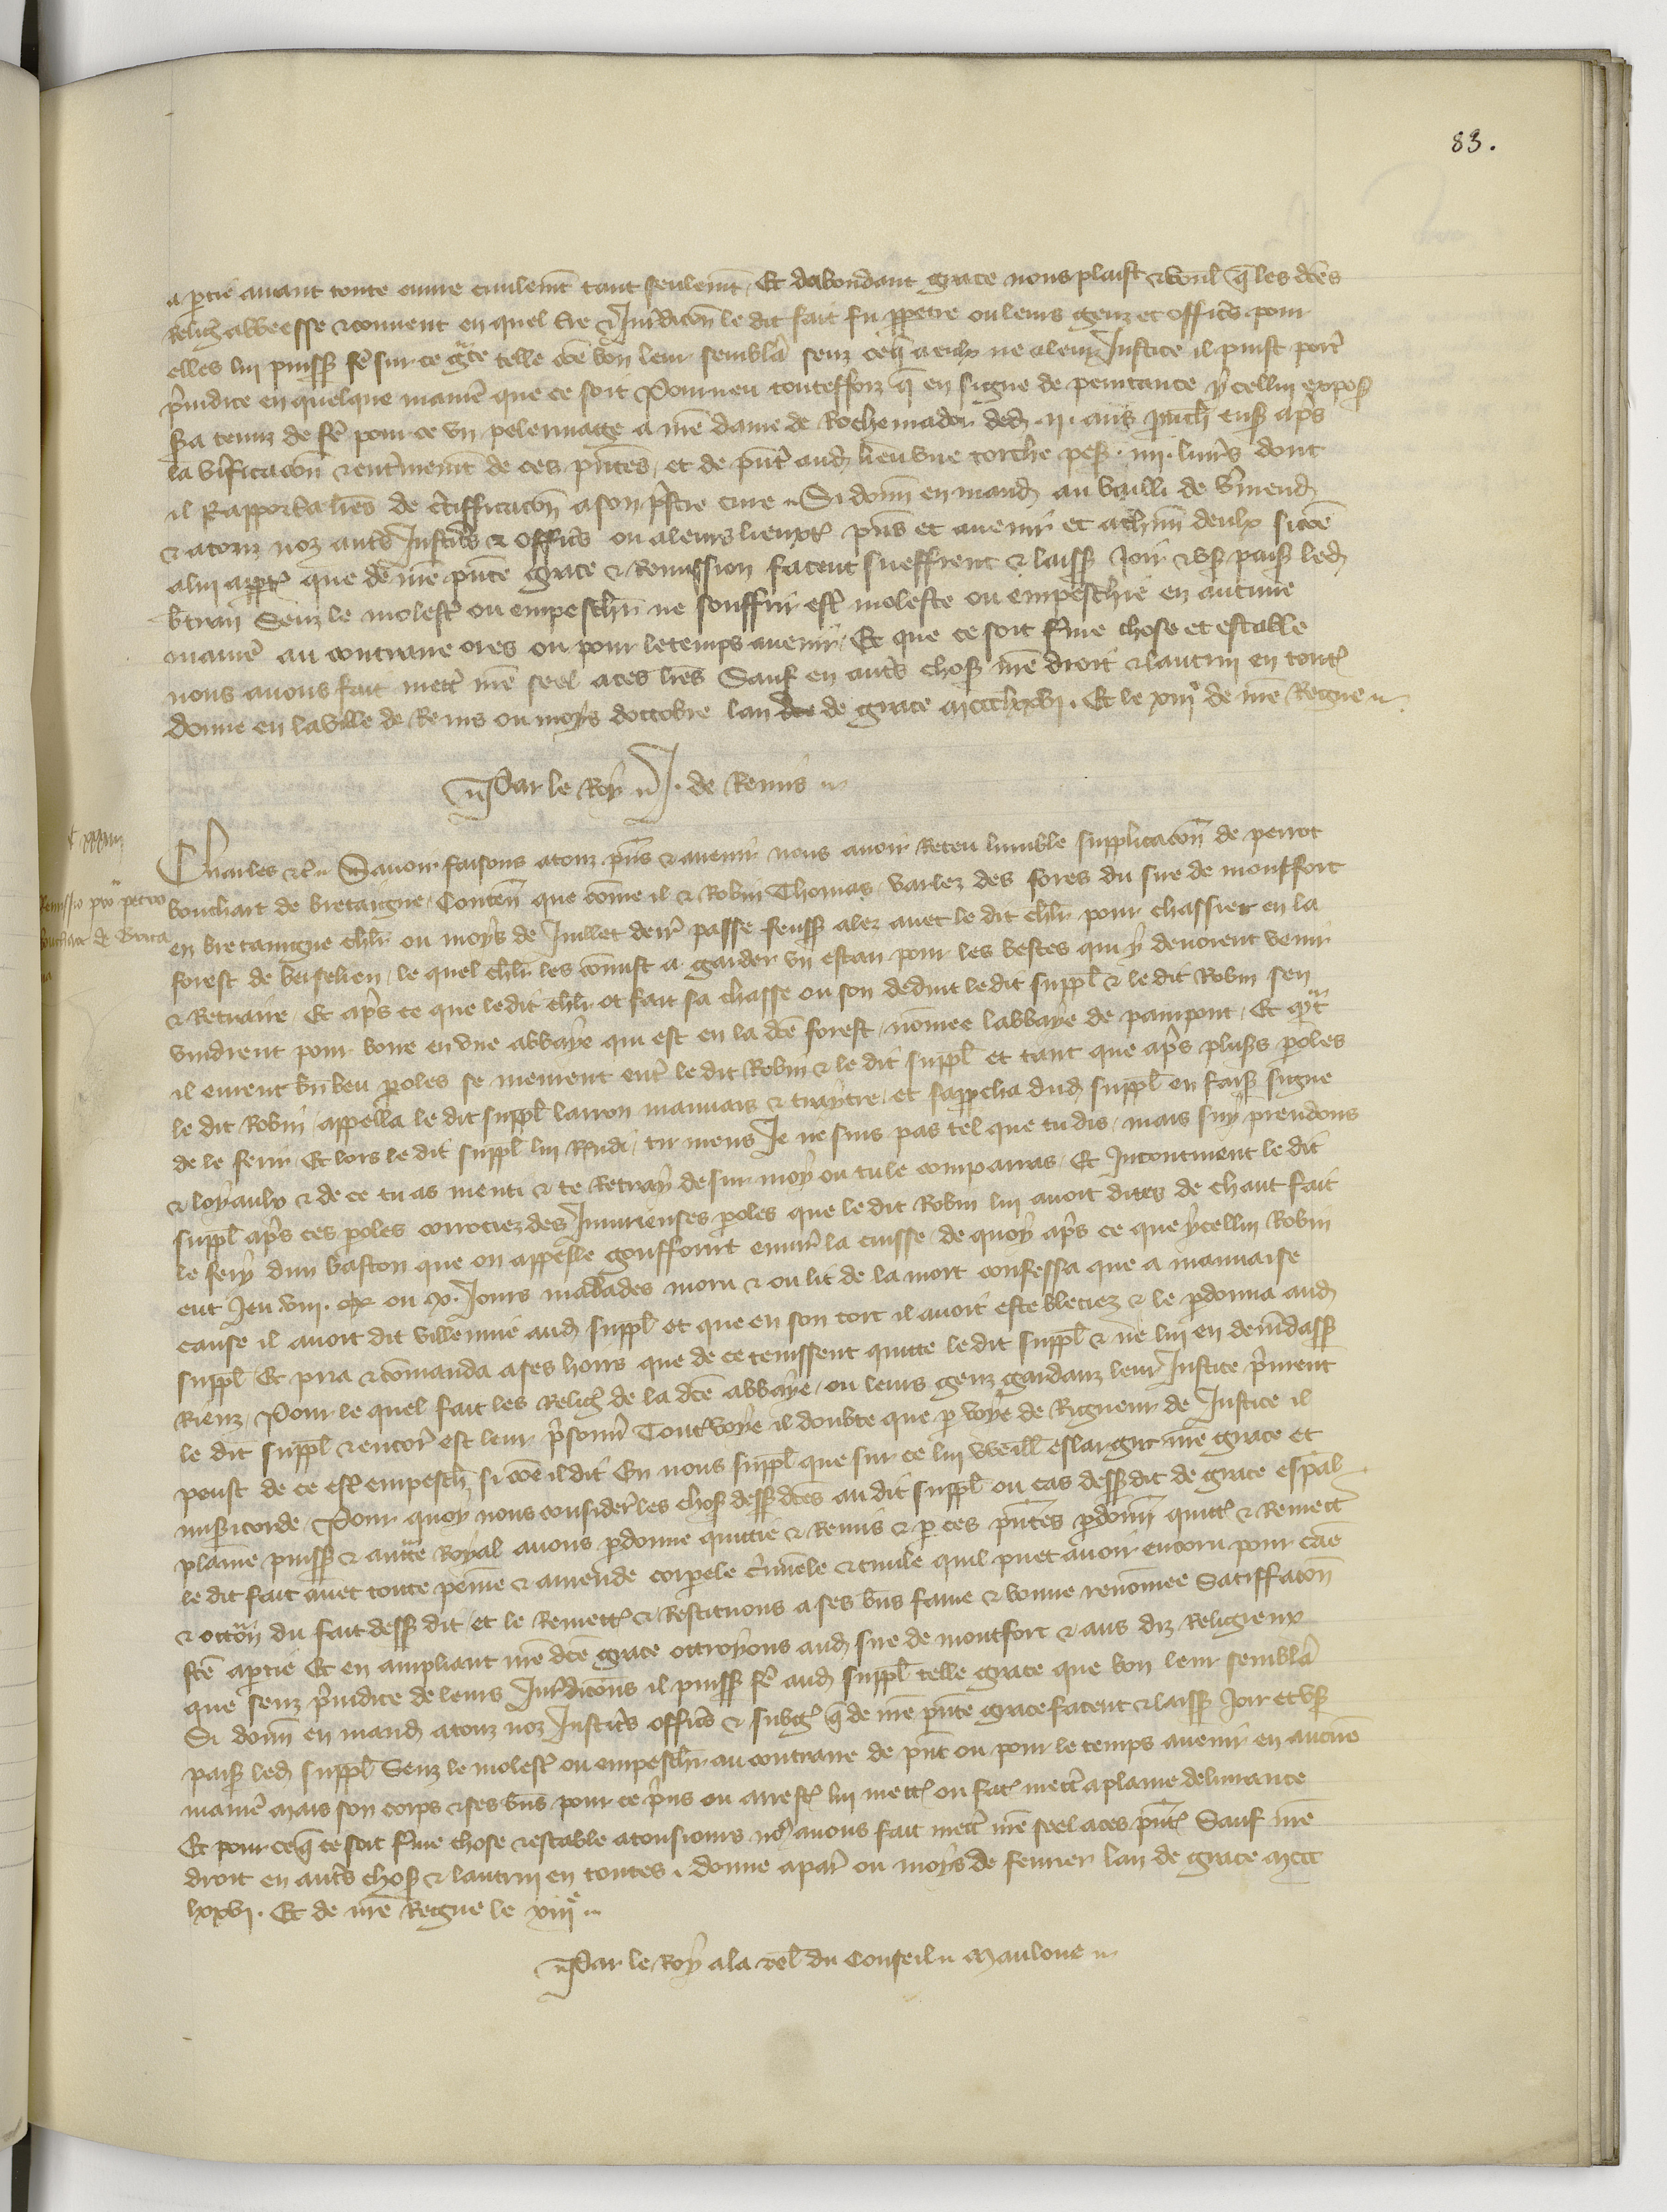 83.
a ptie avant toute euvre civilemt tant seulemt. Et dabondant grace nous plaist & voul q les dces
Relig abbeesse & couvent en quel tre & Juridicon le dit fait fu ppetre ou leurs genz et officrs pour
elles lui puiss fe sur ce grace telle coe bon leur semblera senz ce q a eulx ne a leur Justice il puist porter
prejudice en quelque manie que ce soit Pourveu touteffoiz q en signe de penitance ycellui expos
sa tenuz de fe pour ce un pelerinage a nre dame de Rochemadour dedens .ii. ans proch ens apres
la verificacon & enterinemt de ces pntes, et de pnter aud lieu une torche pes .iiii. livres dont
il Rapportera lres de certifficacon a son prestre cure Si donn en mand au bailli de Vermend
& a touz noz autres Justicrs & officrs ou a leurs lieuxten pns et avenir et a chun deulx si coe
a lui appt que de nre pnte grace & Remission facent sueffrent & laiss Joir & us paisib led
btran Senz le molester ou empeschier ne souffrir estre moleste ou empeschie en aucune
manie au contraire ores ou pour le temps avenir, Et que ce soit ferme chose et estable
nous avons fait mettre nre seel a ces lres Sauf en autres choses nre droit & lautrui en toutes
donne en la ville de Reins ou moys doctobre lan de grace mccclxxvi. Et le xiiie de nre Regne
Par le Roy J. de Remis
Charles &c Savoir faisons a touz pns & avenir nous avoir Receu lumble supplicacon de perrot
bouchart de bretaigne, Conten que come il & Robin Thomas varlez des fores du sire de montfort
en bretaingne chlr ou moys de Juillet derr passe feuss alez avec le dit chlr pour chassier en la
forest de berselien, le quel chlr les commist a garder un estan pour les bestes qui y devoient venir
& Retraire, Et apres ce que le dit chlr ot fait sa chasse ou son deduit le dit suppl & le dit Robin sen
vindrent pour boire en une abbaye qui est en la dce forest nommee labbaye de painpont, Et quant
il eurent bu beu poles se meurent entre le dit Robin & le dit suppl et tant que apres pluss poles
le dit Robin appella le dit suppl larron mauvais & traytre, et sapprcha dud suppl en fais signe
de le ferir Et lors le dit suppl lui Rndi, tu mens Je ne suis pas tel que tu dis, mais suy preudons
& loyaulx & de ce tu as menti & te Retray de sur moy ou tu le comparras, Et Incontinent le dit
suppl apres ces poles courouciez des Injurieuses poles que le dit Robin lui avoit dites de chaut fait
le fery dun baston que on appelle gouffourt emmi la cuisse, de quoy apres ce que ycellui Robin
eut Jeu viii. ix ou x. Jours malades mouru & ou lit de la mort confessa que a mauvaise
cause il avoit dit villennie aud suppl et que en son tort il avoit este bleciez & le pdonna aud
suppl, Et pria & commanda a ses hoirs que de ce tenissent quitte le dit suppl & ne lui en demandass
Rienz, Pour le quel fait les Relig de la dce abbaye, ou leurs genz gardanz leur Justice prinrent
le dit suppl & encore est leur prisonn Toutevoye il doubte que p voye de Rigueur de Justice il
peust de ce estre empesch si coe il dit En nous suppl que sur ce lui vueill eslargir nre grace et
misericorde, Pour quoy nous consider les choses dessus dces au dit suppl ou cas dessusdit de grace espal
plaine puiss & aucte Royal avons pdonne quittie & Remis & p ces pntes pdonn quitt & Remect
le dit fait avec toute peine & amende corpele criminele & civile quil puet avoir encoru pour cae
& occon du fait dessus dit, et le Remett & Restituons a ses bns fame & bonne renommee Satiffacon
fce a ptie Et en ampliant nre dce grace ottroyons aud sire de montfort & aus diz Religieux
que senz prejudice de leurs Juridicons il puiss fe aud suppl telle grace que bon leur semblera
Si donn en mand a touz noz Justicrs officrs & subgz q de nre pnte grace facent & laiss Joir et us
paisib led suppl Senz le molester ou empeschier au contraire de pnt ou pour le temps avenir en aucune
manie Mais son corps & ses bns pour ce prins ou arrestez lui mettez ou faites mectre a plaine delivrance
Et pour ce q ce soit ferme chose & estable a tousjours nous avons fait mectre nre seel a ces pntes Sauf nre
droit en autres choses & lautrui en toutes. donne a paris ou moys de fevrier lan de grace mccc
lxxvi. Et de nre Regne le xiiie
Par le Roy a la Rel du Conseil Mauloue
Remissio pro petro
bouchart de Britania